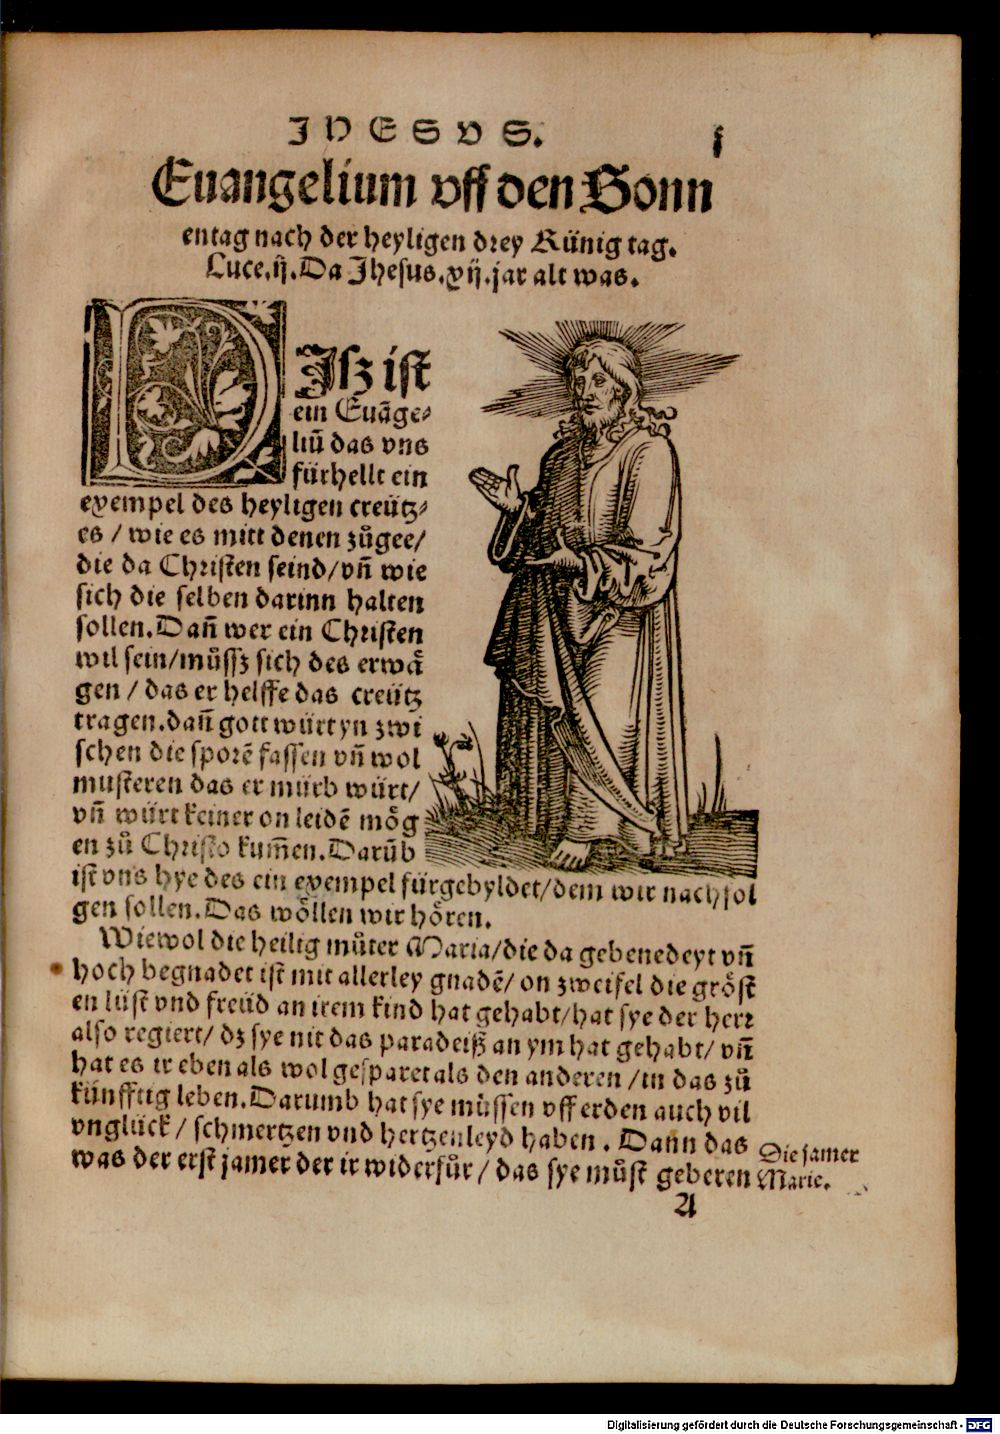 JHESVS. j
Euangelium vff den Sonn
entag nach der heyligen drey Künig tag.
Luce.ij. Da Jhesus.xij.jar alt was.
DJsz ist
ein Euāge-
liū das vns
fürhellt ein
exempel des heyligen creütz-
es / wie es mitt denen zůgee /
die da Christen seind / vñ wie
sich die selben darinn halten
sollen. Dañ wer ein Christen
wil sein / můsz sich des erwaͤ
gen / das er helffe das creütz
tragen. dañ gott würt yn zwi
schen die sporē fassen vñ wol
musteren das er mürb würt /
vñ würt keiner on leidē moͤg
en zů Christo kum̄en. Darūb
ist vns hye des ein exempel fürgebyldet / dem wir nachfol
gen sollen. Das woͤllen wir hoͤren.
Wiewol die heilig můter Maria / die da gebenedeyt vñ
hoch begnadet ist mit allerley gnadē / on zweifel die groͤst
en lüst vnd freüd an irem kind hat gehabt / hat sye der herr
also regiert / dz sye nit das paradeiß an ym hat gehabt / vñ
hat es ir eben als wol gesparet als den anderen / in das zů
künfftig leben. Darumb hat sye müssen vff erden auch vil
vnglück / schmertzen vnd hertzenleyd haben. Dann das
was der erst jamer der ir widerfůr / das sye můst geberen
Die jamer
Marie.
A
Digitalisierung gefördert durch die Deutsche Forschungsgemeinschaft - DFG